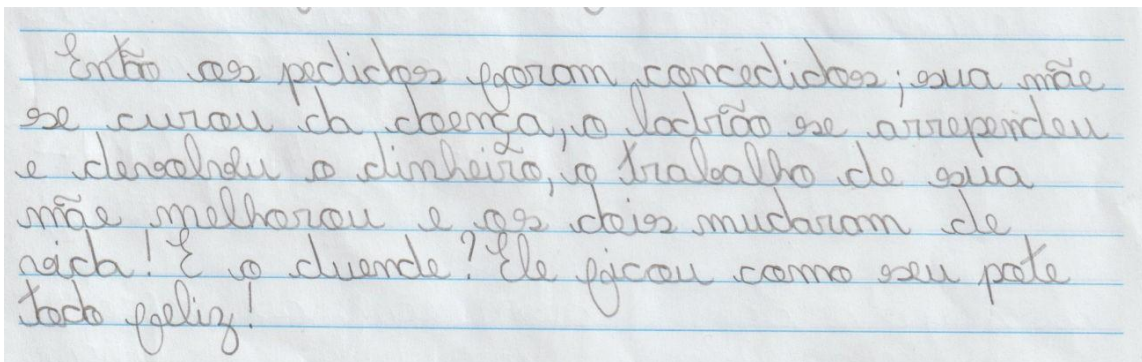 Então os pedidos foram concedidos; sua mãe
se curou da doença, o ladrão se arrependeu
e devolveu o dinheiro, o trabalho de sua
mãe melhorou e os dois mudaram de
vida! E o duende? Ele ficou como seu pote
todo feliz!